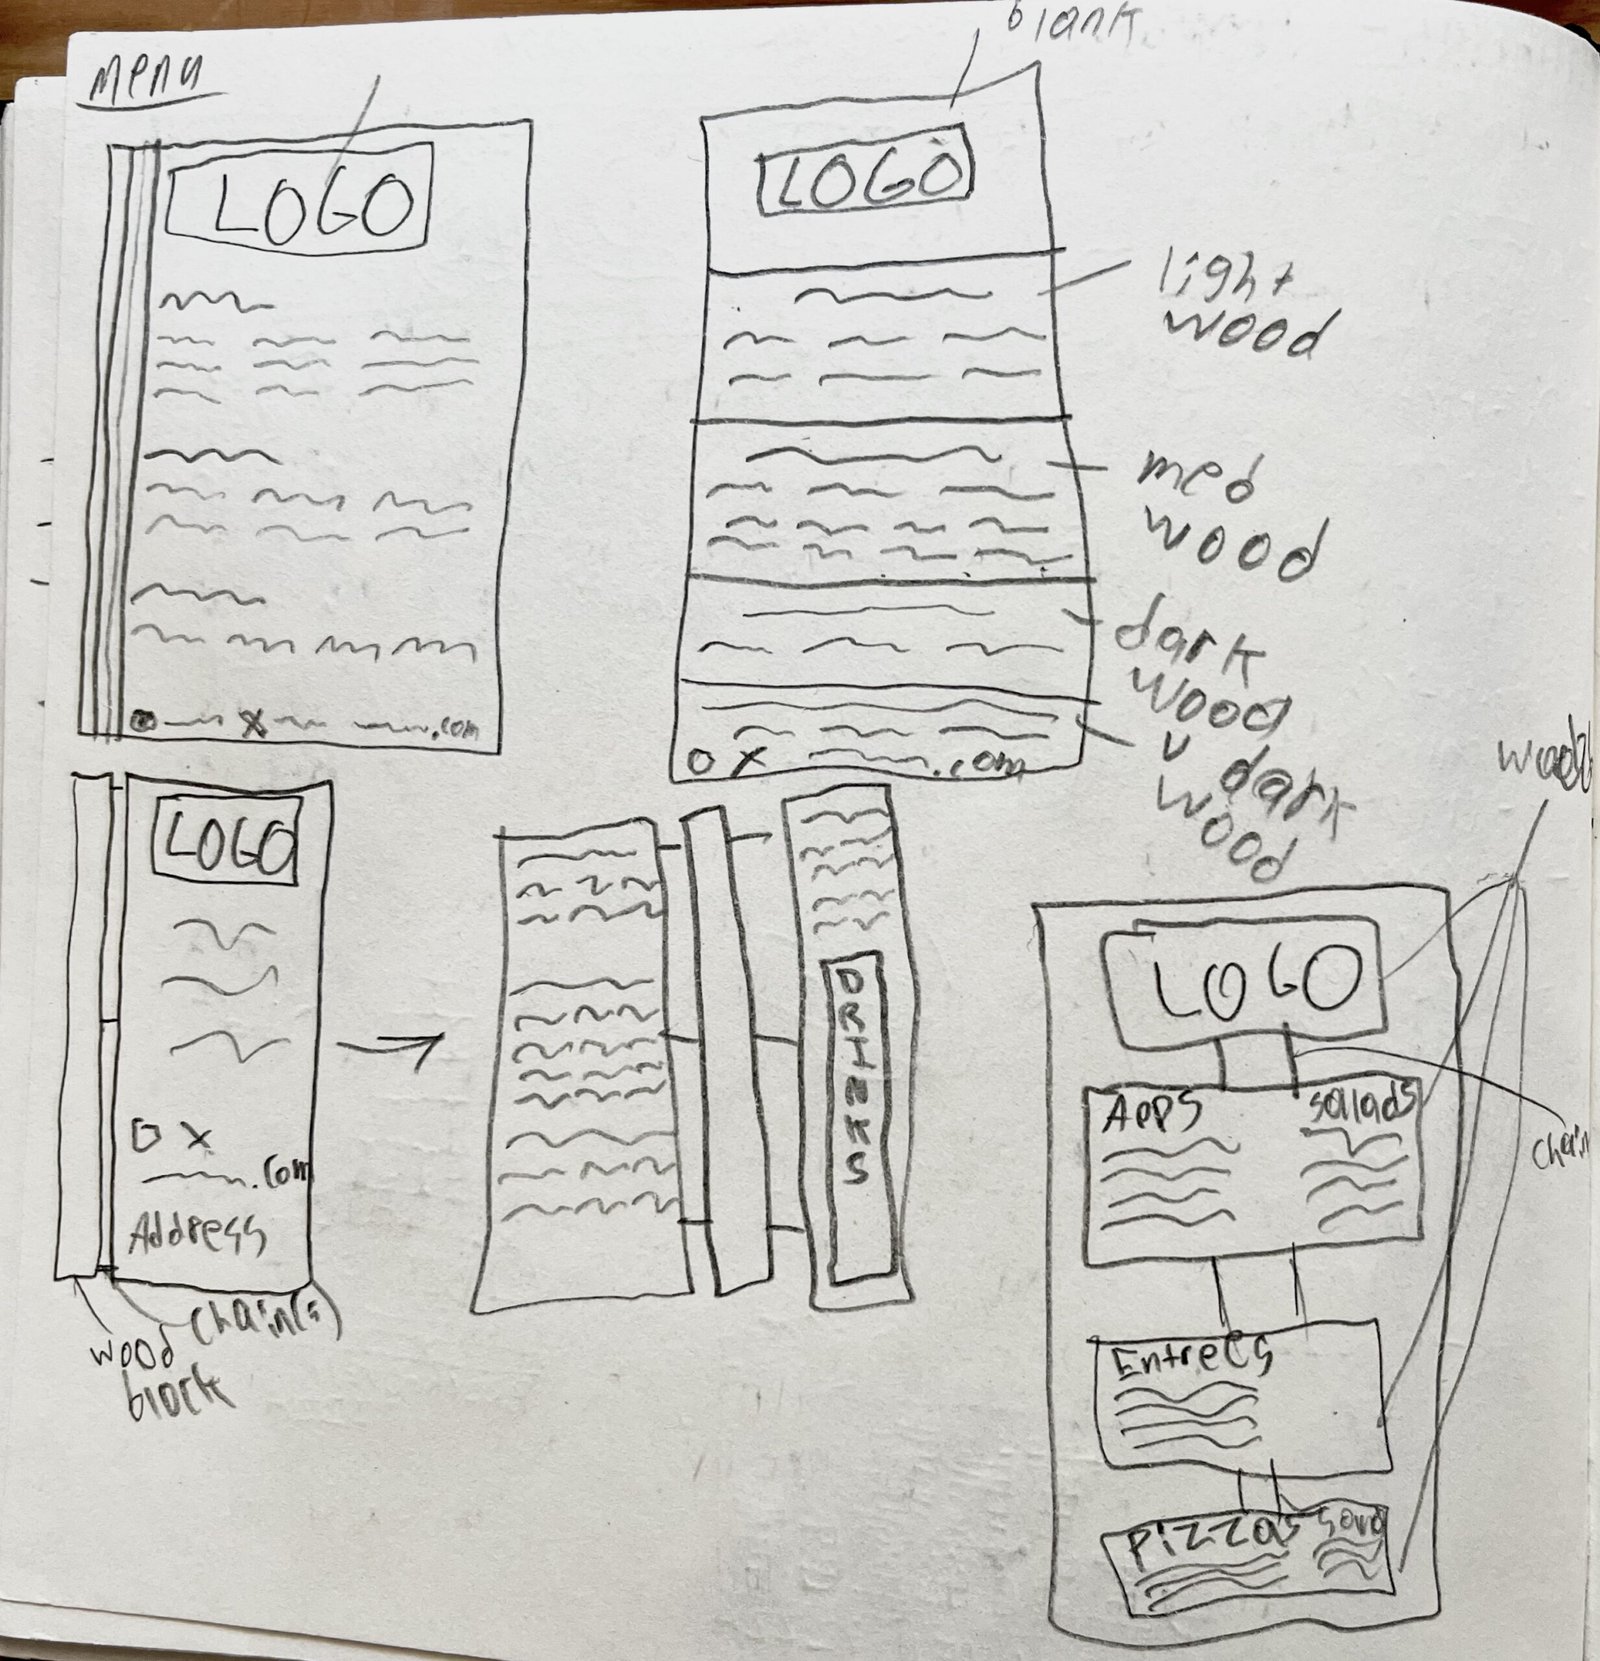 menu
blank
LOGO
.com
LOGO
light
wood
med
wood
dark
wood
v dark
wood
O X
.com
LOGO
O X
.com
Address
wood
block
chain(s)
DRINKS
LOGO
Apps
Salads
Entrees
Pizzas